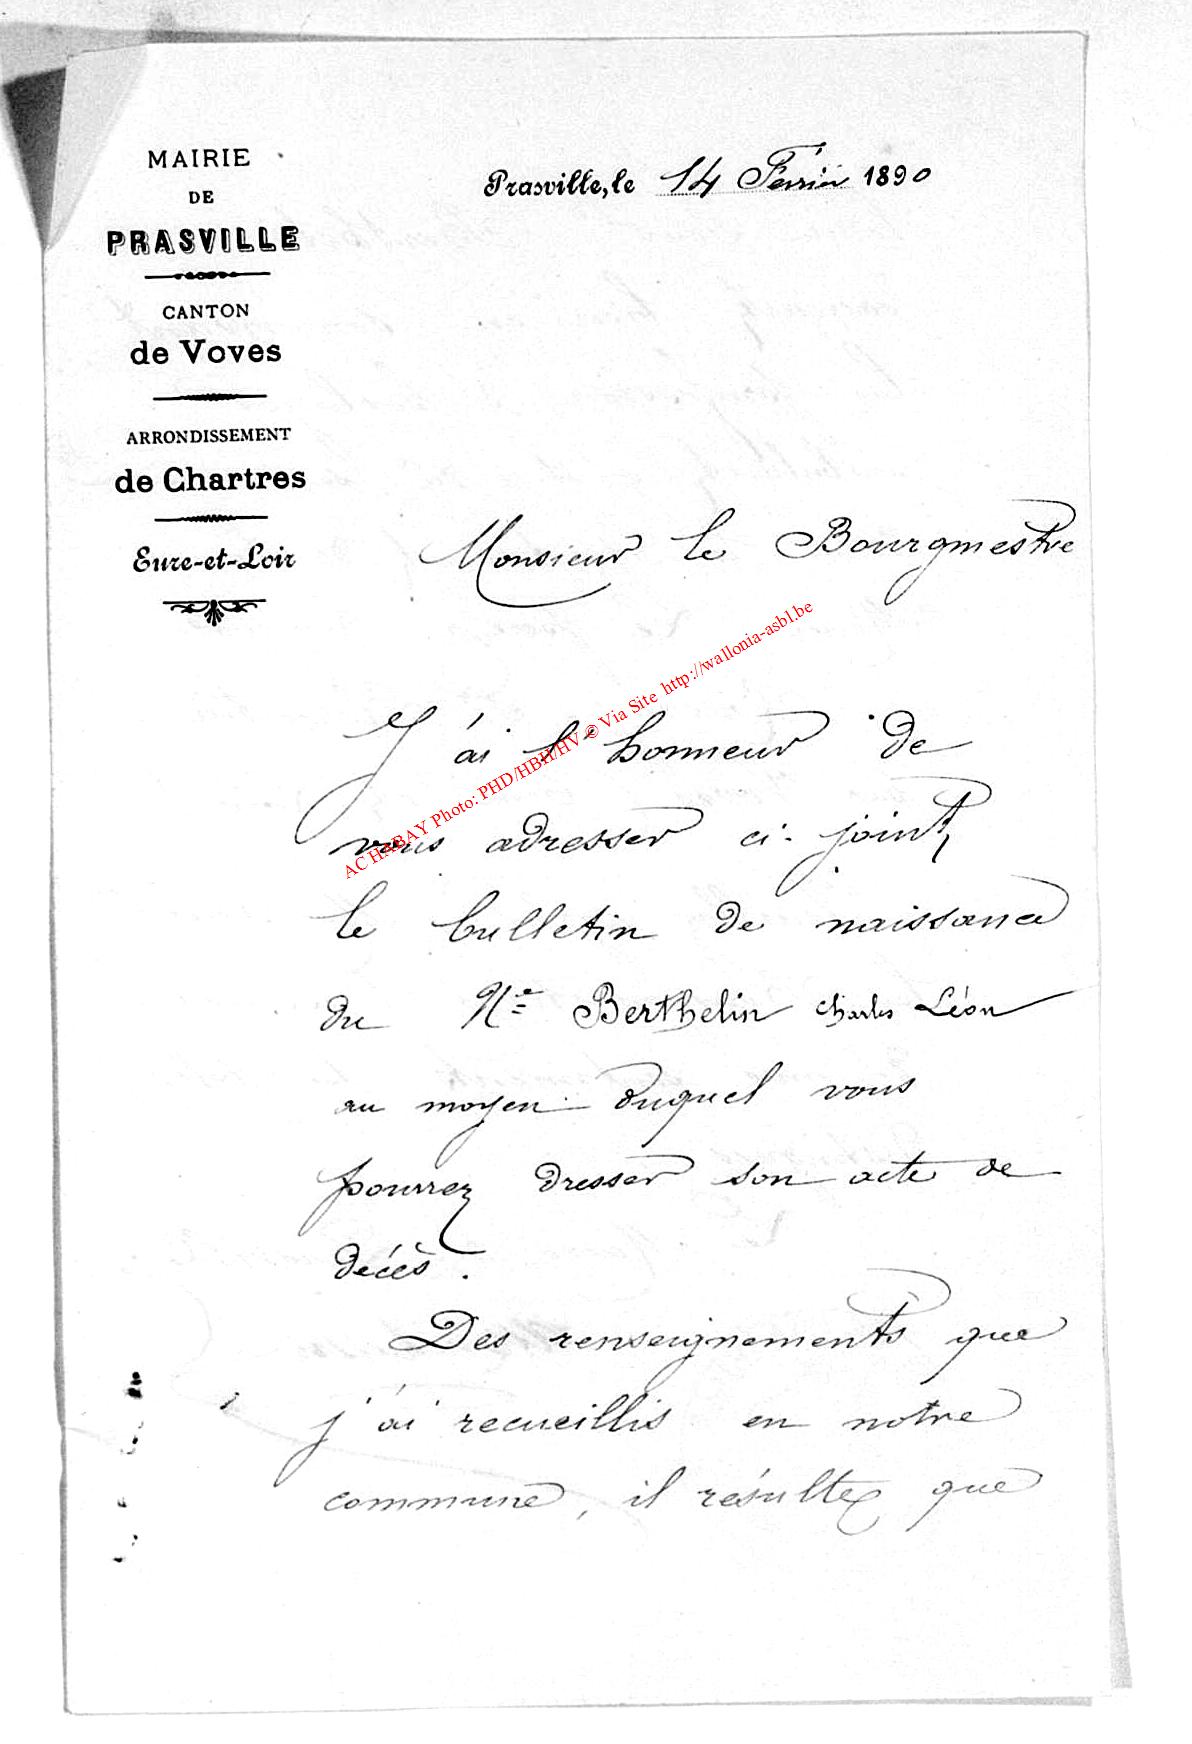 MAIRIE
DE
PRASVILLE
CANTON
de Voves
ARRONDISSEMENT
de Chartres
Eure-et-Loir
Prasville, le 14 Février 1890
Monsieur le Bourgmestre
J'ai l'honneur de
vous adresser ci-joint,
le bulletin de naissance
du Né Berthelin Charles Léon
au moyen duquel vous
pourrez dresser son acte de
décès.
Des renseignements que
j'ai recueillis en notre
commune, il résulte que
AC HABAY Photo: PHD/HBH/HV © Via Site http://wallonia-asbl.be